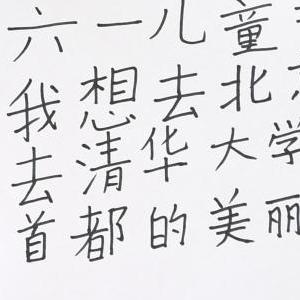 六一儿童
我想去北京
去清华大学
首都的美丽